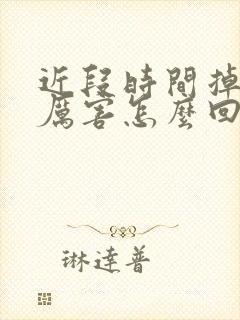 近段時間掉
厲害怎麼回
琳達普